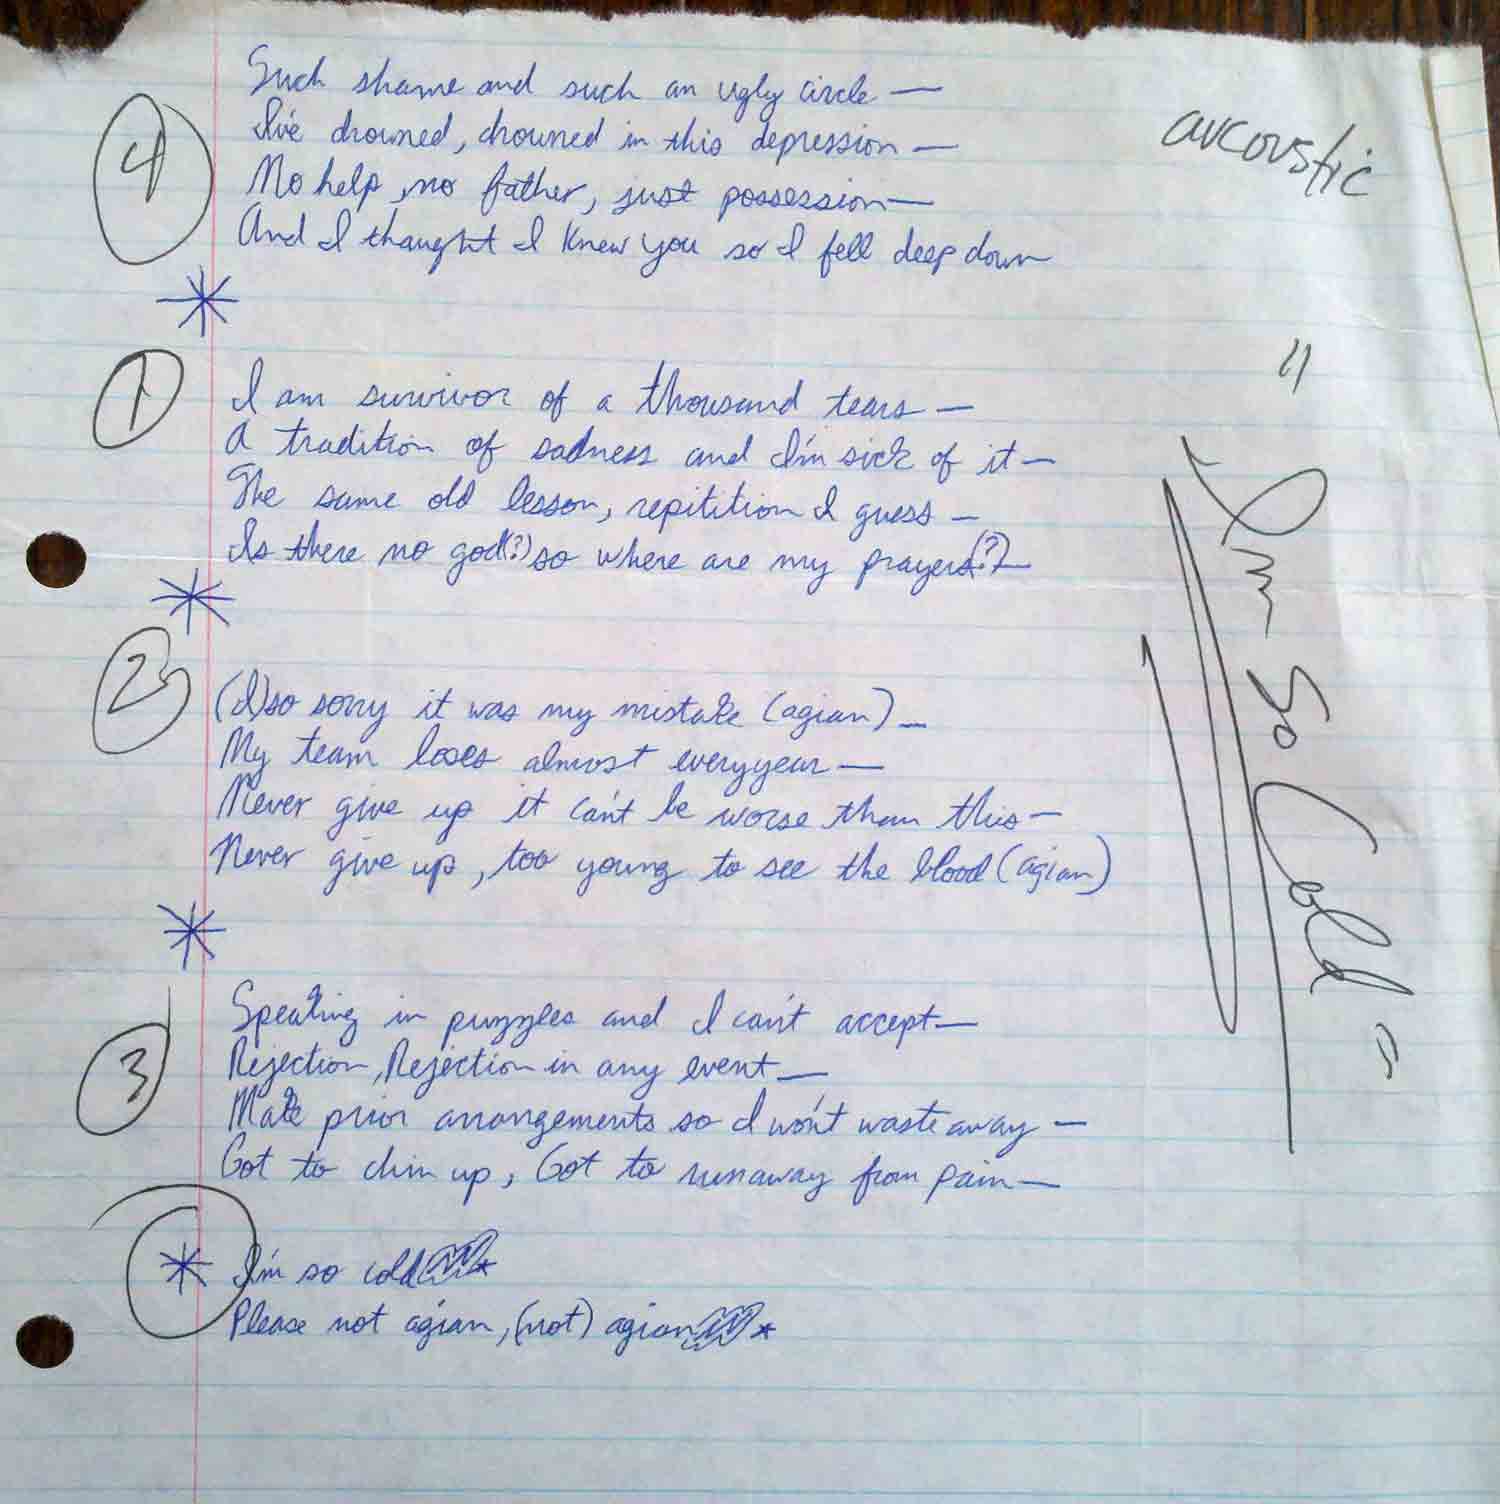 Such shame and such an ugly circle —
I've drowned, drowned in this depression —
No help, no father, just possession —
And I thought I knew you so I fell deep down
4
avcovstic
*
1
I am survivor of a thousand tears —
A tradition of sadness and I'm sick of it —
The same old lesson, repitition I guess —
Is there no god(?) so where are my prayers(?) —
*
2
(I) so sorry it was my mistake (agian) —
My team loses almost everyyear —
Never give up it can't be worse than this —
Never give up, too young to see the blood (agian)
*
3
Speaking in puzzles and I can't accept —
Rejection, Rejection in any event —
Make prior arrangements so I won't waste away —
Got to chin up, Got to runaway from pain —
* I'm so cold *
Please not agian, (not) agian *
"I'm So Cold"